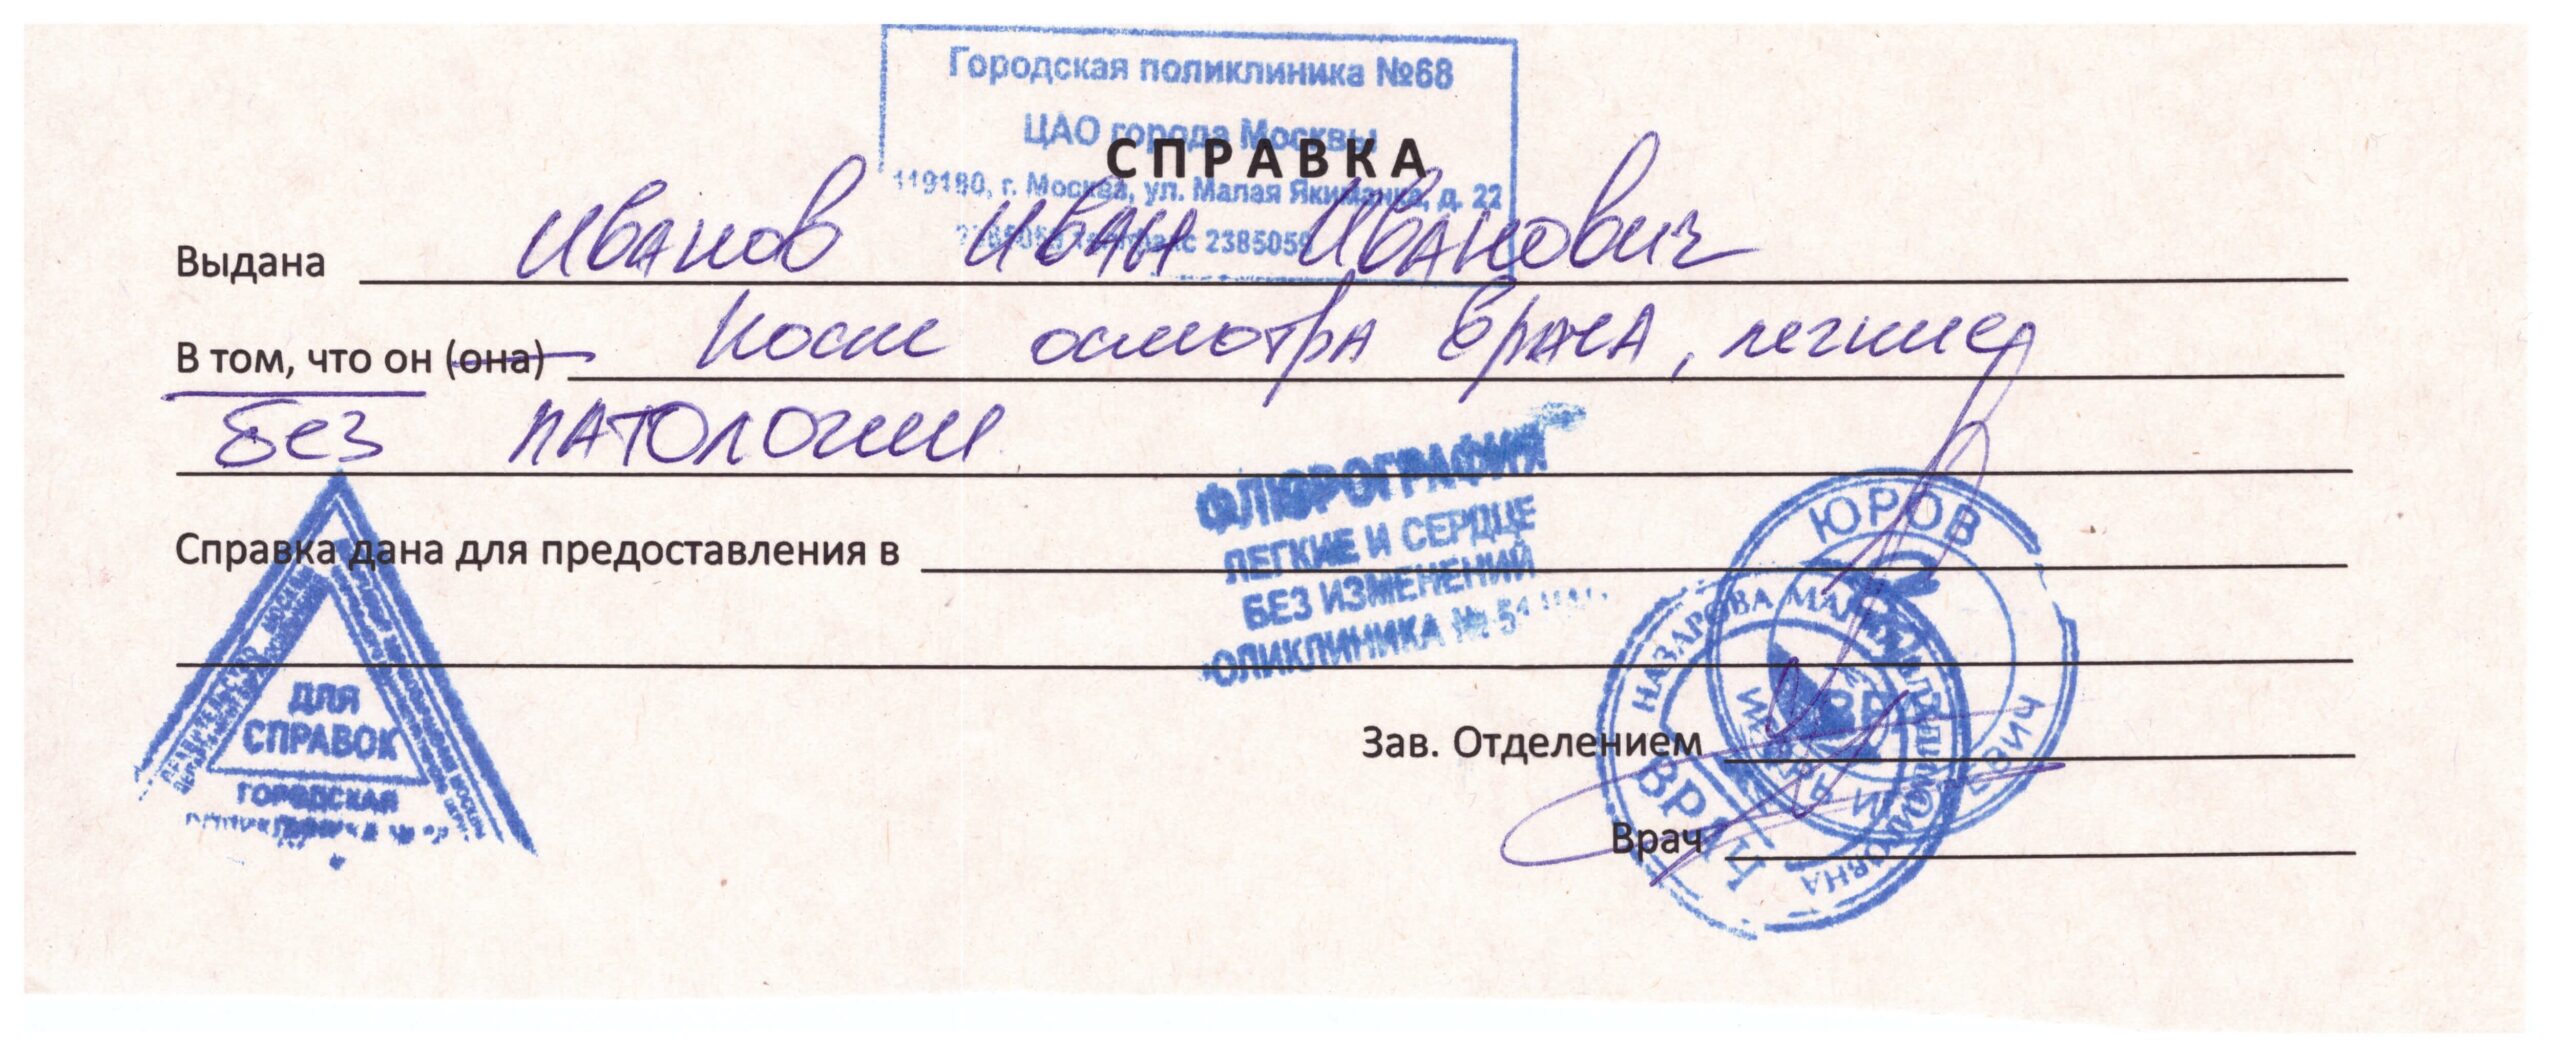 Городская поликлиника №68
ЦАО города Москвы
СПРАВКА
119180, г. Москва, ул. Малая Якиманка, д. 22
2385059 факс 2385059
Выдана Иванов Иван Иванович
В том, что он (она) после осмотра врача, легкие
без патологии
ФЛЮРОГРАФИЯ
ЛЕГКИЕ И СЕРДЦЕ
БЕЗ ИЗМЕНЕНИЙ
ПОЛИКЛИНИКА № 51
Справка дана для предоставления в
ДЛЯ
СПРАВОК
ГОРОДСКАЯ
ЮРОВ
НАЗАРОВА
ВРАЧ
Зав. Отделением
Врач